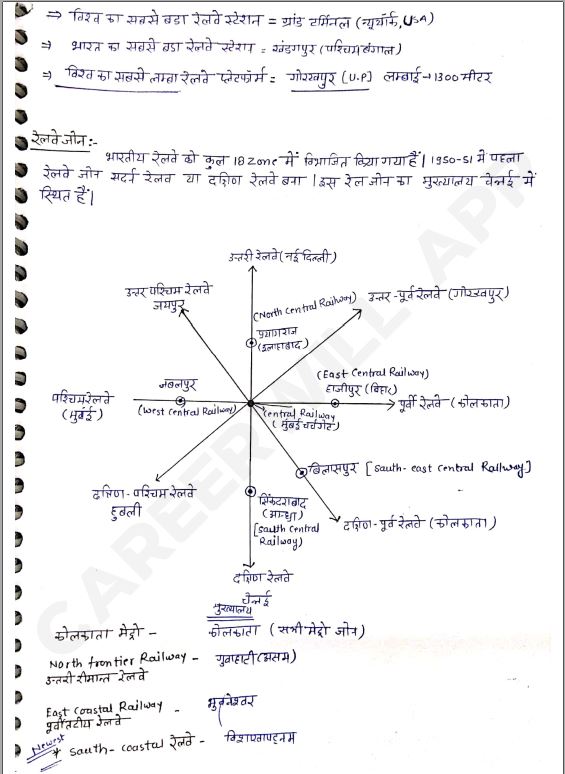 ⇒ विश्व का सबसे बडा रेलवे स्टेशन = ग्रांड टर्मिनल (न्यूयॉर्क, USA)
⇒ भारत का सबसे बडा रेलवे स्टेशन = खडगपुर (पश्चिम बंगाल)
⇒ विश्व का सबसे लम्बा रेलवे प्लेटफॉर्म = गोरखपुर (U.P) लम्बाई → 1300 मीटर
रेलवे जोन:-
भारतीय रेलवे को कुल 18 Zone में विभाजित किया गया हैं। 1950-51 में पहला
रेलवे जोन सदर्न रेलवे या दक्षिण रेलवे बना। इस रेल जोन का मुख्यालय चेन्नई में
स्थित हैं।
उत्तरी रेलवे (नई दिल्ली)
उत्तर पश्चिम रेलवे
जयपुर
(North Central Railway)
उत्तर-पूर्व रेलवे (गोरखपुर)
प्रयागराज
(इलाहाबाद)
(East Central Railway)
हाजीपुर (बिहार)
जबलपुर
पश्चिम रेलवे
(मुंबई)
(West Central Railway)
(Central Railway
(मुंबई चर्चगेट)
पूर्वी रेलवे (कोलकाता)
बिलासपुर [South-east Central Railway]
दक्षिण-पश्चिम रेलवे
हुबली
सिकंदराबाद
(आन्ध्रा)
[South Central
Railway)
दक्षिण-पूर्व रेलवे (कोलकाता)
दक्षिण रेलवे
चेन्नई
मुख्यालय
कोलकाता मेट्रो - कोलकाता (सभी मेट्रो जोन)
North frontier Railway - गुवाहाटी (असम)
उत्तरी सीमान्त रेलवे
East Coastal Railway - भुवनेश्वर
पूर्वीतटीय रेलवे
Newest
* South-coastal रेलवे - विशाखापट्टनम
CAREERWILL APP